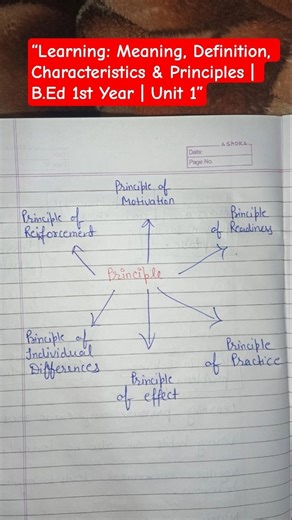 “Learning: Meaning, Definition,
Characteristics & Principles |
B.Ed 1st Year | Unit 1”
ASHOKA
Date:
Page No:
Principle of
Motivation
Principle of
Reiforcement
Principle
of Readiness
Principle
Principle of
Individual
Differences
Principle
of effect
Principle
of Practice